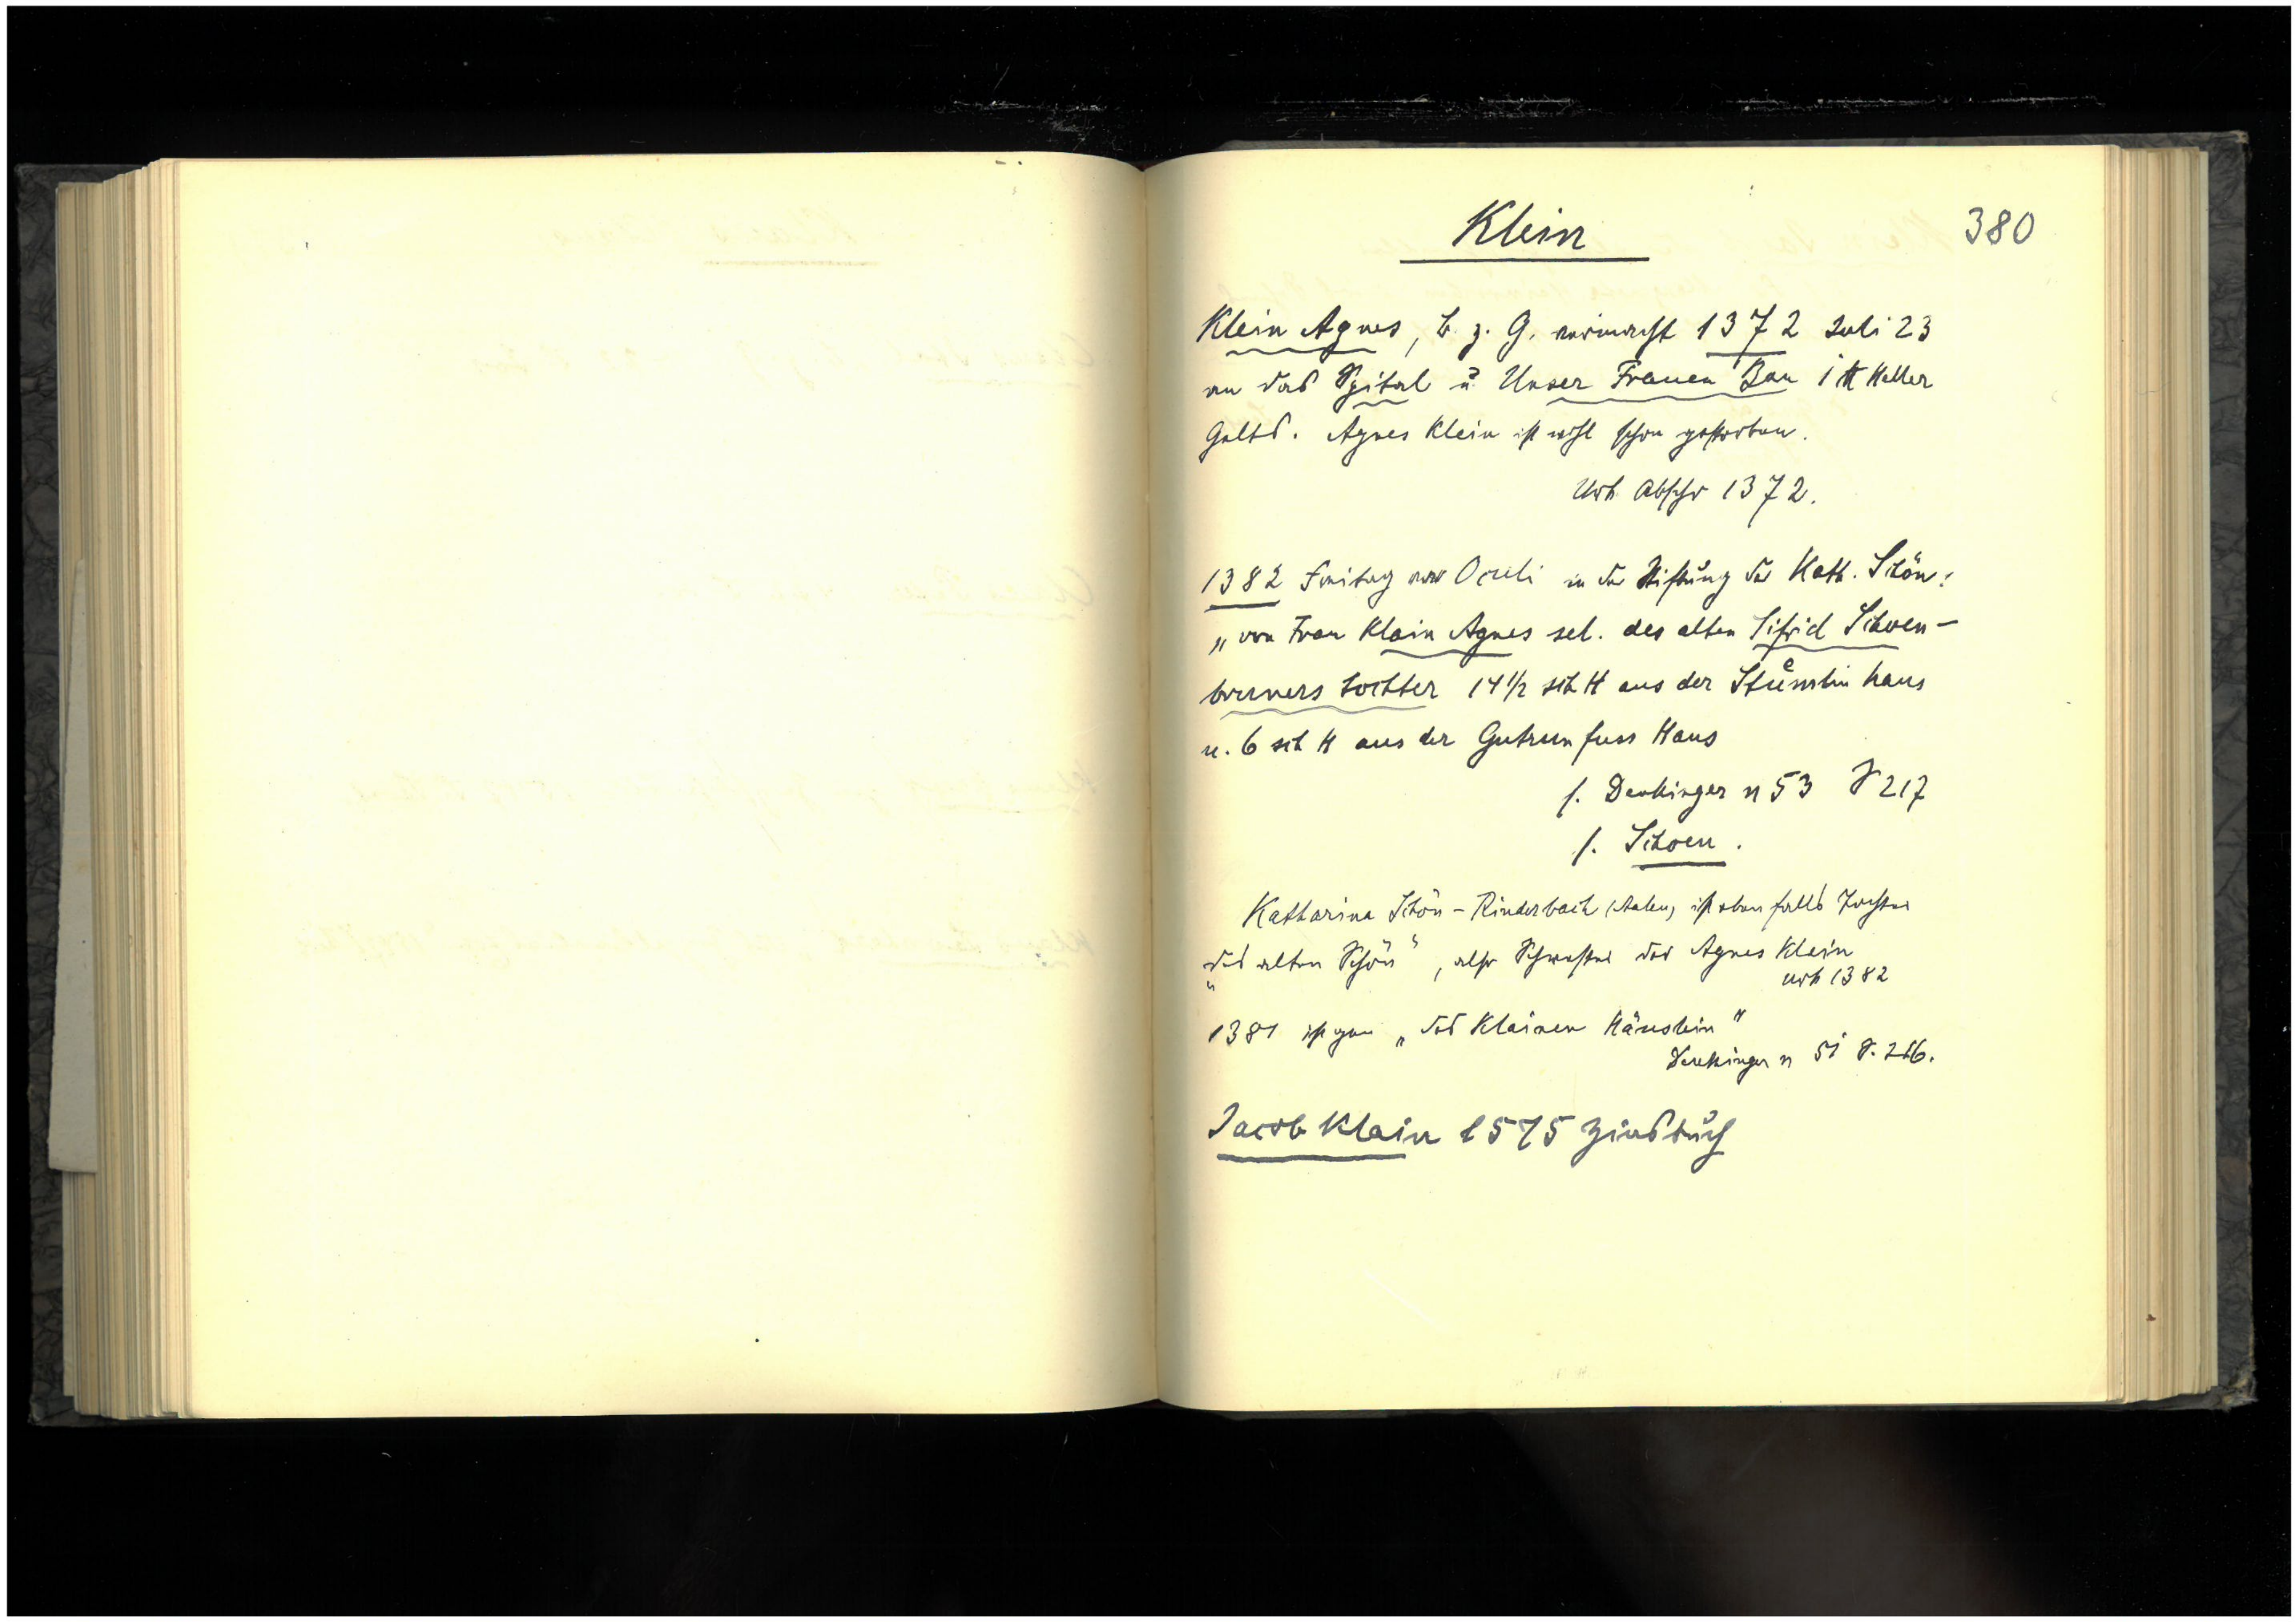 Klein
380
Klein Agnes, B. z. G. vermacht 1372 Juli 23
an das Spital u. Unser Frauen Bau 1 ℔ Heller
Gelts. Agnes Klein ist wohl schon gestorben.
Urk Abschr 1372.
1382 Freitag vor Oculi in der Stiftung der Kath. Schön:
„von Frau Klain Agnes sel. des alten Sifrid Schoen-
bruners tochter 14½ sch H aus der haus
u. 6 sch H aus der Gutrun fuss Haus
s. Denkinger n 53 S 217
s. Schoen.
Katharina Schön - Rinderbach (Aalen) ist ebenfalls Tochter
„des alten Schön“, also Schwester der Agnes Klein
Urk 1382
1381 ist gen „des Klainen Häuslein“
Denkinger n 51 S. 216.
Jacob Klain 1575 Zinsbuch